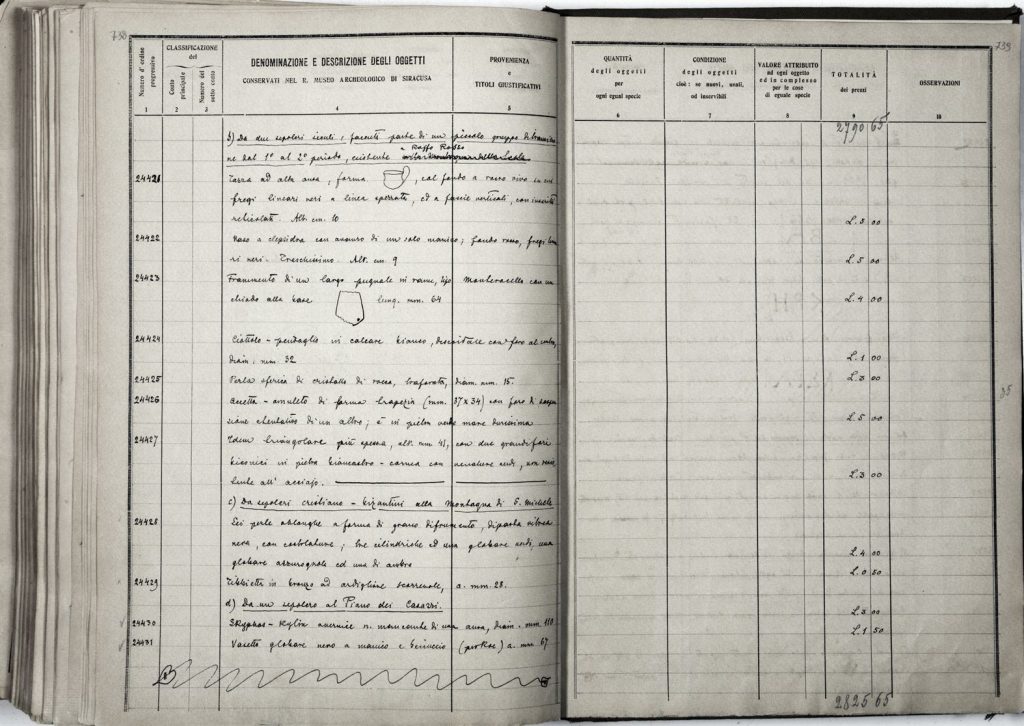 738
Numero d'ordine progressivo
1
CLASSIFICAZIONE
del
Conto principale
2
Numero del sotto conto
3
DENOMINAZIONE E DESCRIZIONE DEGLI OGGETTI
CONSERVATI NEL R. MUSEO ARCHEOLOGICO DI SIRACUSA
4
PROVENIENZA
e
TITOLI GIUSTIFICATIVI
5
b) Da due sepolcri siculi, facenti parte di un piccolo gruppo di transizio
ne dal 1° al 2° periodo, esistente a Raffo Rosso
24421 Tazza ad alta ansa, forma , col fondo a rosso vivo su cui
fregi lineari neri a linea spezzata, ed a fascie verticali,
reticolati. Alt. cm. 10
24422 Vaso a clepsidra con avanzo di un solo manico; fondo rosso, fregi linea
ri neri. Freschissimo. Alt. cm. 9
24423 Frammento di un largo pugnale in rame, tipo Monteracello con un
chiodo alla base lung. mm. 64
24424 Ciottolo-pendaglio in calcare bianco, discoidale con foro al centro,
diam. mm. 32
24425 Perla sferica di cristallo di rocca, traforata, diam. mm. 15.
24426 Accetta-amuleto di forma trapezia (mm. 37x34) con foro di sospen
sione e tentativo di un altro; è in pietra verde mare durissima
24427 Idem triangolare più spessa, alt. mm 41, con due grandi fori
biconici in pietra biancastro-carnea con venature verdi, non
all'acciajo.
c) Da sepolcri cristiano-bizantini alla Montagna di S. Michele
24428 Sei perle oblunghe a forma di grano di frumento, di pasta vitrea
nera, con costolature; tre cilindriche ed una globare verdi, una
globare azzurognola ed una di ambra
24429 Fibbietta in bronzo ad ardiglione scorrevole, a. mm. 28.
d) Da un sepolcro al Piano dei Casazzi.
24430 Skyphos-Kylix a vernice n. mancante di una ansa, diam. mm 110
24431 Vasetto globare nero a manico e beccuccio a. mm 67
739
QUANTITÀ
degli oggetti
per
ogni egual specie
6
CONDIZIONE
degli oggetti
cioè: se nuovi, usati,
od inservibili
7
VALORE ATTRIBUITO
ad ogni oggetto
ed in complesso
per le cose
di eguale specie
8
TOTALITÀ
dei prezzi
9
OSSERVAZIONI
10
2790 65
L. 3 00
L. 5 00
L. 4 00
L. 1 00
L. 3 00
L. 5 00
L. 3 00
L. 4 00
L. 0 50
L. 3 00
L. 1 50
2825 65